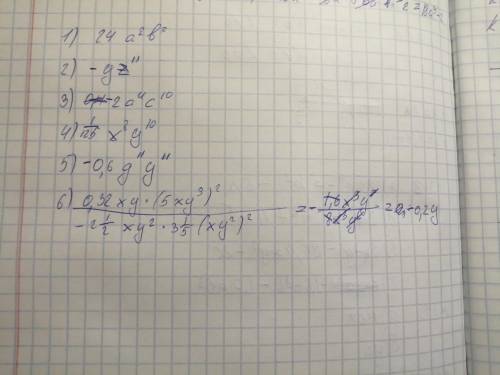 1) 24 a²b²
2) -gz¹¹
3) -2a⁴c¹⁰
4) 1/125 x⁷y¹⁰
5) -0,6 g¹¹y¹¹
6) 0,32xy · (5xy³)² / -2 1/2 xy² · 3 1/5 (xy²)² = - 1,6x³y⁷ / 8x³y⁶ = -0,2y